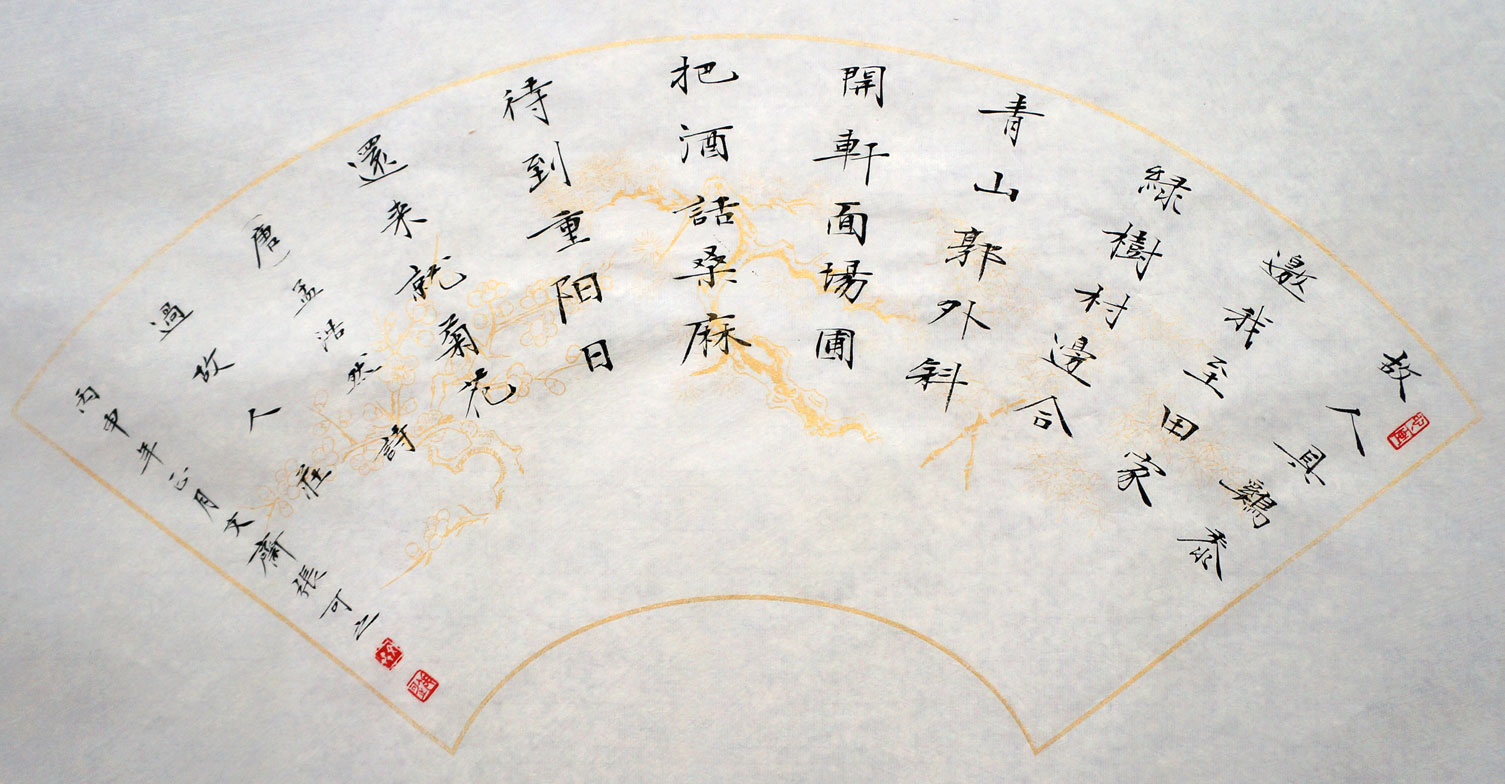 故人具鷄黍
邀我至田家
緑樹村邊合
青山郭外斜
開軒面場圃
把酒話桑麻
待到重阳日
還来就菊花
唐孟浩然詩
過故人莊
丙申年正月文齋張可